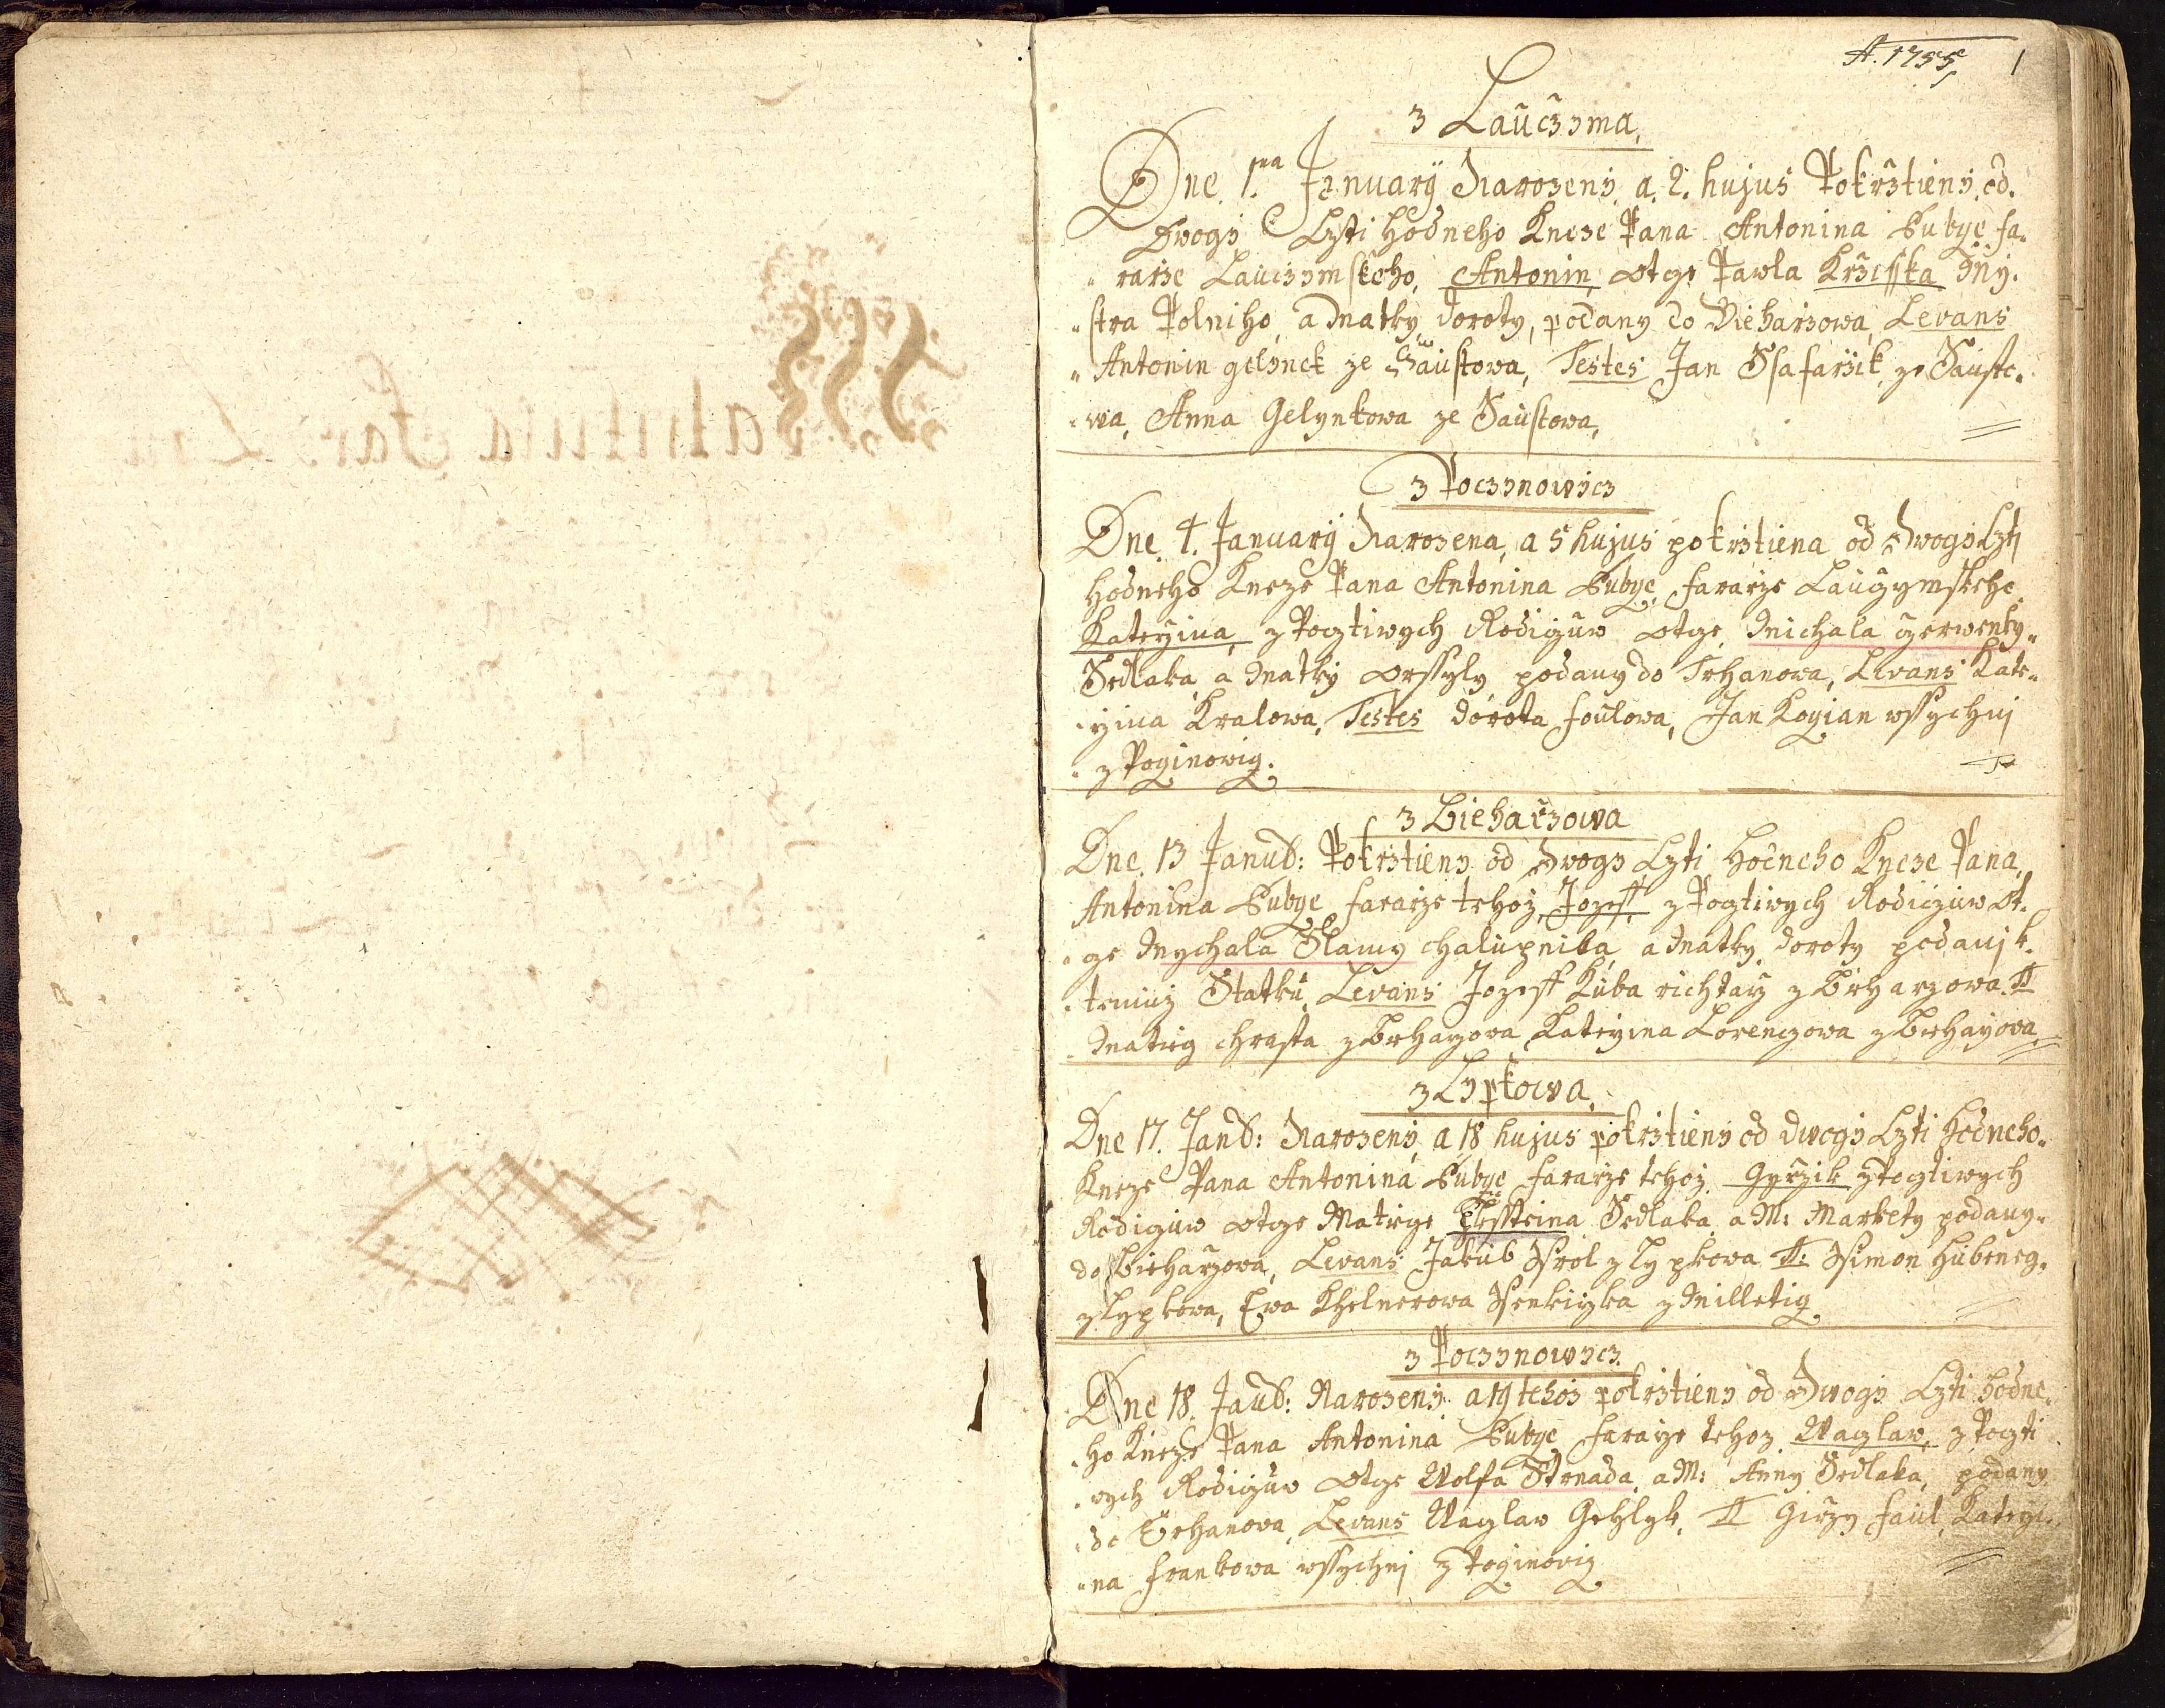 A. 1755 1
z Laucżyma,
Dne. 1.ma January Narozeny, a. 2. hujus Pokrżtieny, od.
Dwogy Czti Hodneho Kneze Pana Antonina Bubye, fa.
rarże Laucżymskeho, Antonin, otge Pawla Krżcsska My.
stra Polniho, a Matky, doroty, podany do Bieharżowa, Levans
Antonin gelynek ze Saustowa, Testes Jan Ssafarżik, ze Sausto.
wa, Anna Gelynkowa ze Saustowa,
z Poczynowicz
Dne. 4. January Narozena, a 5 hujus pokrżtiena od Dwogy Czti
Hodneho Kneze Pana Antonina Bubye, fararże Laucżymskeho
Katerżina, z Pocztiwych Rodiczuw otge, Michala Czerwenky
Sedlaka, a Matky orssyly podany do Trhanowa, Levans Kate
rżina Kralowa, Testes dorota foulowa, Jan Kocyian wssychni
z Poczinowicz.
z Bieharżowa
Dne. 13 Janu: Pokrżtieny, od Dwogy Czti Hodneho Kneze Pana,
Antonina Bubye fararże tehoż, Jozeff, z Pocztiwych Rodiczuw Ot.
ge Mychala Slamy chalupnika, a Matky, doroty podani k.
temuż Statku, Levans Jozeff Kuba richtarż z Bieharżowa. T
Matieg chrasta z Bieharżowa Katerżina Lorenczowa z Bieharżowa
z Lypkowa,
Dne 17. Jan: Narozeny, a 18 hujus pokrżtieny od dwogy Czti Hodneho
Kneze Pana Antonina Bubye fararże tehoż, Gyrżik z Pocztiwych
Rodiczuw otge Matiege Sedlaka, a M: Markety podany
do Bieharżowa, Levans Jakub Kral z Lypkowa T: Ssimon Hubeneg.
z Lypkowa, Ewa Khelnerowa Ssenkirżka z Milleticz
z Poczynowicz
Dne 18. Jan: Narozeny, a 19 tehoż pokrżtieny od Dwogy Czti hodne
ho Kneze Pana Antonina Bubye fararże tehoż, Waczlaw, z Poczti
wych Rodiczuw otge Wolfa Strnada, a M: Anny Sedlaka, podany
do Trhanowa, Levans Waczlaw Gehlyk, T Girży faul, Katerżi
na frankowa wssychni z Poczinowicz